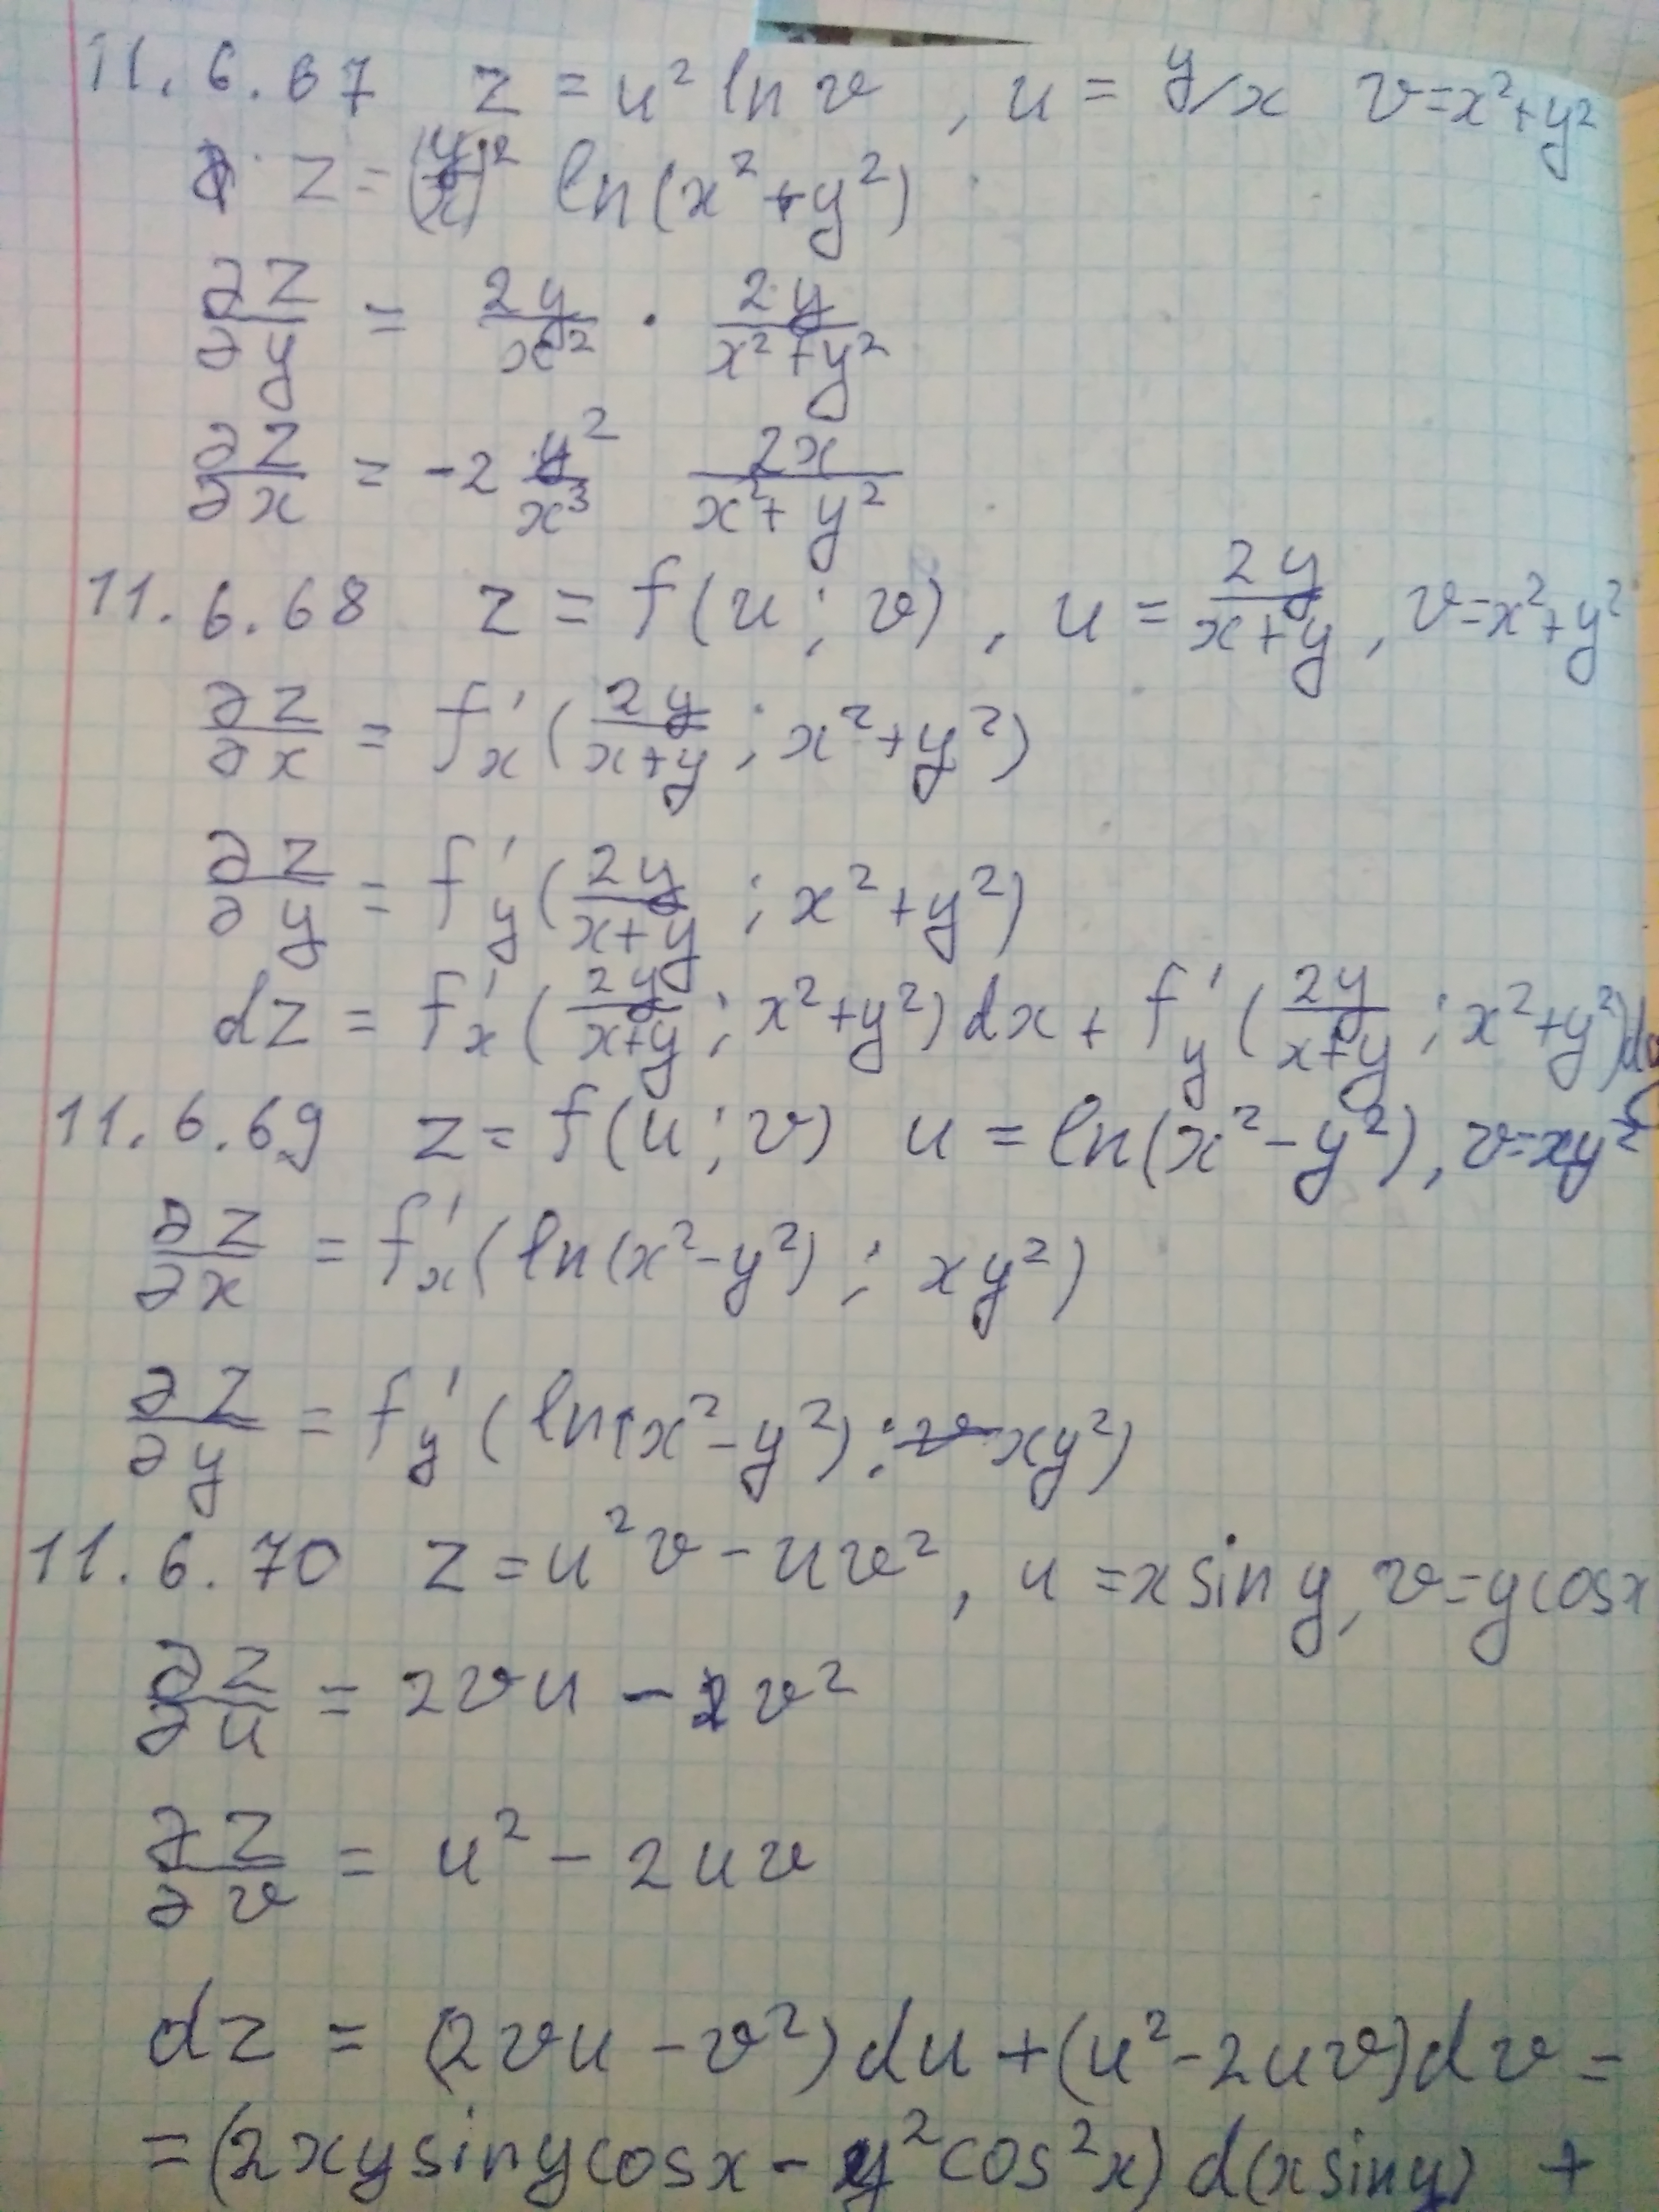 11.6.67 z = u² ln v, u = y/x v=x²+y²
z = (y/x)² ln(x²+y²)
∂z/∂y = 2y/x² · 2y/(x²+y²)
∂z/∂x = -2 y²/x³ 2x/(x²+y²)
11.6.68 z = f(u; v), u = 2y/(x+y), v=x²+y²
∂z/∂x = f'x(2y/(x+y); x²+y²)
∂z/∂y = f'y(2y/(x+y); x²+y²)
dz = f'x(2y/(x+y); x²+y²)dx + f'y(2y/(x+y); x²+y²)d
11.6.69 z = f(u; v) u = ln(x²-y²), v=xy²
∂z/∂x = f'x(ln(x²-y²); xy²)
∂z/∂y = f'y(ln(x²-y²); xy²)
11.6.70 z = u²v - uv², u = x sin y, v=y cos x
∂z/∂u = 2vu - v²
∂z/∂v = u² - 2uv
dz = (2vu - v²)du + (u² - 2uv)dv =
= (2xy sin y cos x - y² cos² x) d(x sin y) +